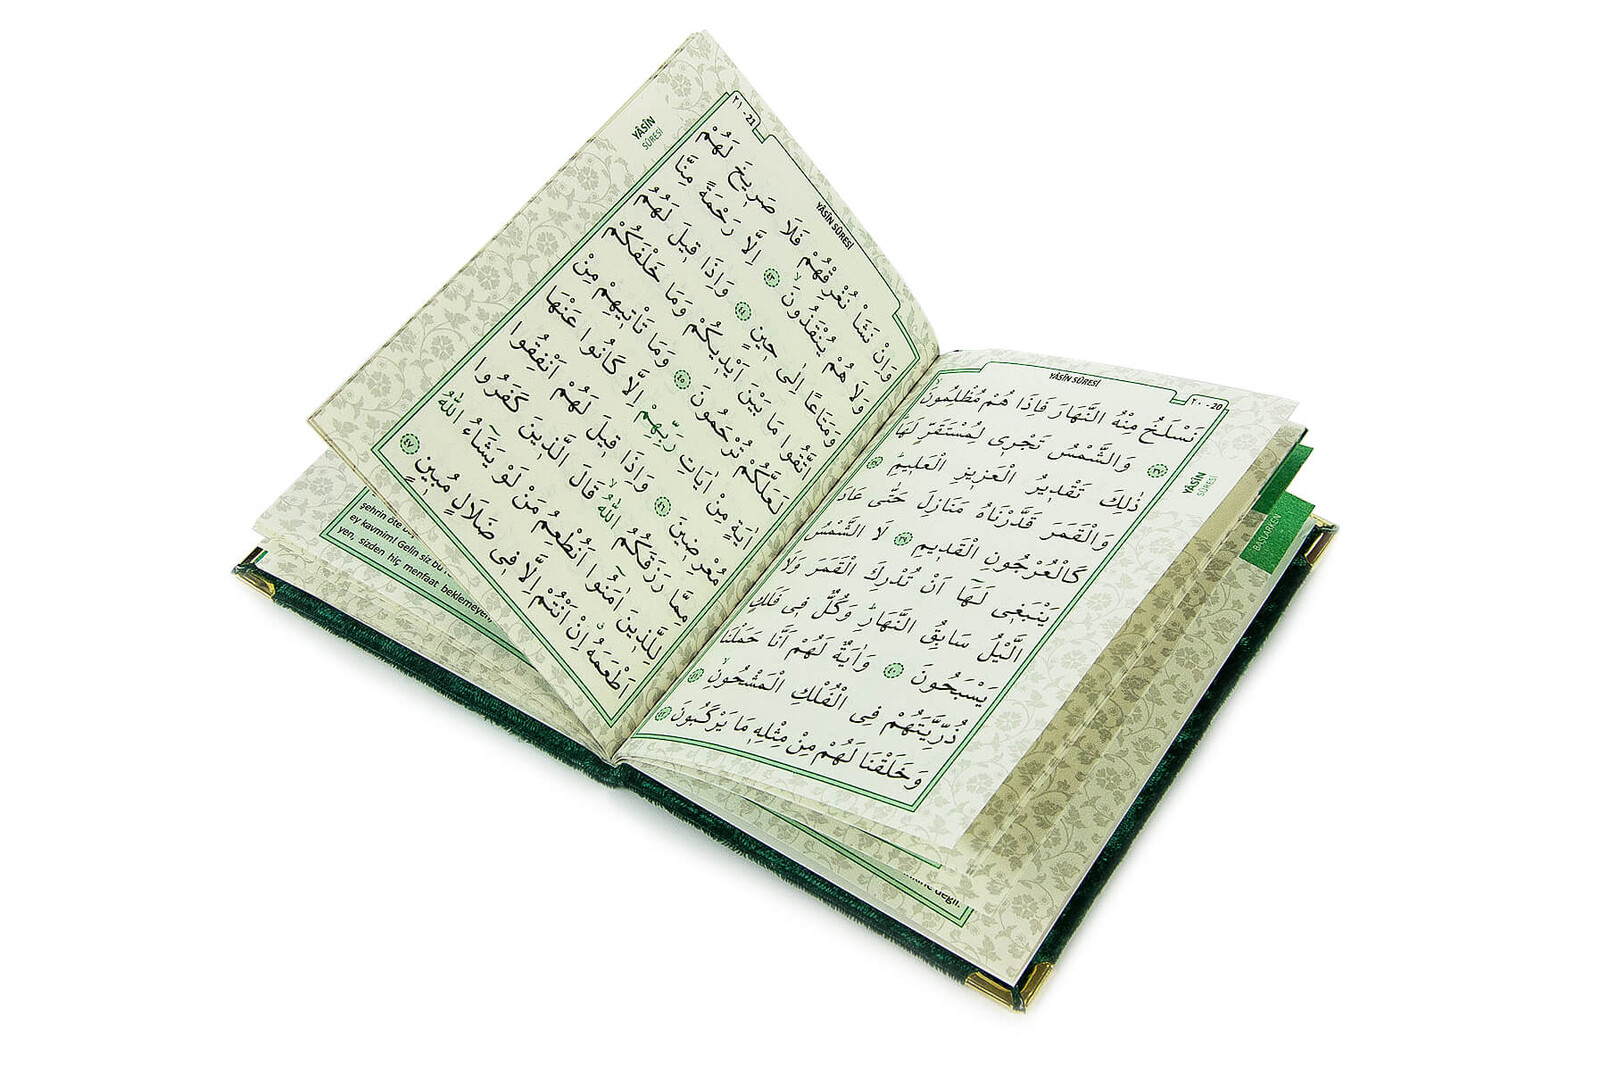 YÂSÎN SÛRESİ
٢٠ - 20
نَسْلَخُ مِنْهُ النَّهَارَ فَاِذَا هُمْ مُظْلِمُونَۙ
﴿٣٧﴾ وَالشَّمْسُ تَجْر۪ي لِمُسْتَقَرٍّ لَهَاۜ
ذٰلِكَ تَقْد۪يرُ الْعَز۪يزِ الْعَل۪يمِۜ ﴿٣٨﴾
وَالْقَمَرَ قَدَّرْنَاهُ مَنَازِلَ حَتّٰى عَادَ
كَالْعُرْجُونِ الْقَد۪يمِ ﴿٣٩﴾ لَا الشَّمْسُ
يَنْبَغ۪ي لَهَٓا اَنْ تُدْرِكَ الْقَمَرَ وَلَا
الَّيْلُ سَابِقُ النَّهَارِۜ وَكُلٌّ ف۪ي فَلَكٍ
يَسْبَحُونَ ﴿٤٠﴾ وَاٰيَةٌ لَهُمْ اَنَّا حَمَلْنَا
ذُرِّيَّتَهُمْ فِي الْفُلْكِ الْمَشْحُونِۙ ﴿٤١﴾
وَخَلَقْنَا لَهُمْ مِنْ مِثْلِه۪ مَا يَرْكَبُونَ ﴿٤٢﴾
YÂSÎN
SÛRESİ
BAŞLARKEN
YÂSÎN SÛRESİ
٢١ - 21
وَاِنْ نَشَأْ نُغْرِقْهُمْ فَلَا صَر۪يخَ لَهُمْ
وَلَا هُمْ يُنْقَذُونَۙ ﴿٤٣﴾ اِلَّا رَحْمَةً مِنَّا
وَمَتَاعًا اِلٰى ح۪ينٍ ﴿٤٤﴾ وَاِذَا ق۪يلَ لَهُمُ
اتَّقُوا مَا بَيْنَ اَيْد۪يكُمْ وَمَا خَلْفَكُمْ
لَعَلَّكُمْ تُرْحَمُونَ ﴿٤٥﴾ وَمَا تَأْت۪يهِمْ مِنْ
اٰيَةٍ مِنْ اٰيَاتِ رَبِّهِمْ اِلَّا كَانُوا عَنْهَا
مُعْرِض۪ينَ ﴿٤٦﴾ وَاِذَا ق۪يلَ لَهُمْ اَنْفِقُوا
مِمَّا رَزَقَكُمُ اللّٰهُۙ قَالَ الَّذ۪ينَ كَفَرُوا
لِلَّذ۪ينَ اٰمَنُٓوا اَنُطْعِمُ مَنْ لَوْ يَشَٓاءُ اللّٰهُ
اَطْعَمَهُۗ اِنْ اَنْتُمْ اِلَّا ف۪ي ضَلَالٍ مُب۪ينٍ ﴿٤٧﴾
YÂSÎN
SÛRESİ
şehrin öte
ey kavmim! Gelin siz bu
yen, sizden hiç menfaat beklemeyen
değil.